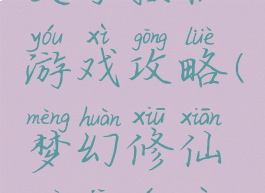 yóu xì gōng lüè
游戏攻略(
mèng huàn xiū xiān
梦幻修仙